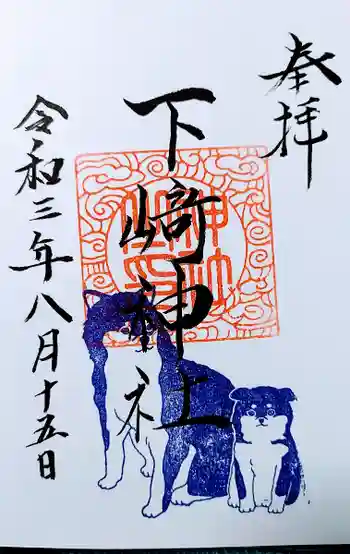 奉拝
下﨑神社
令和三年八月十五日